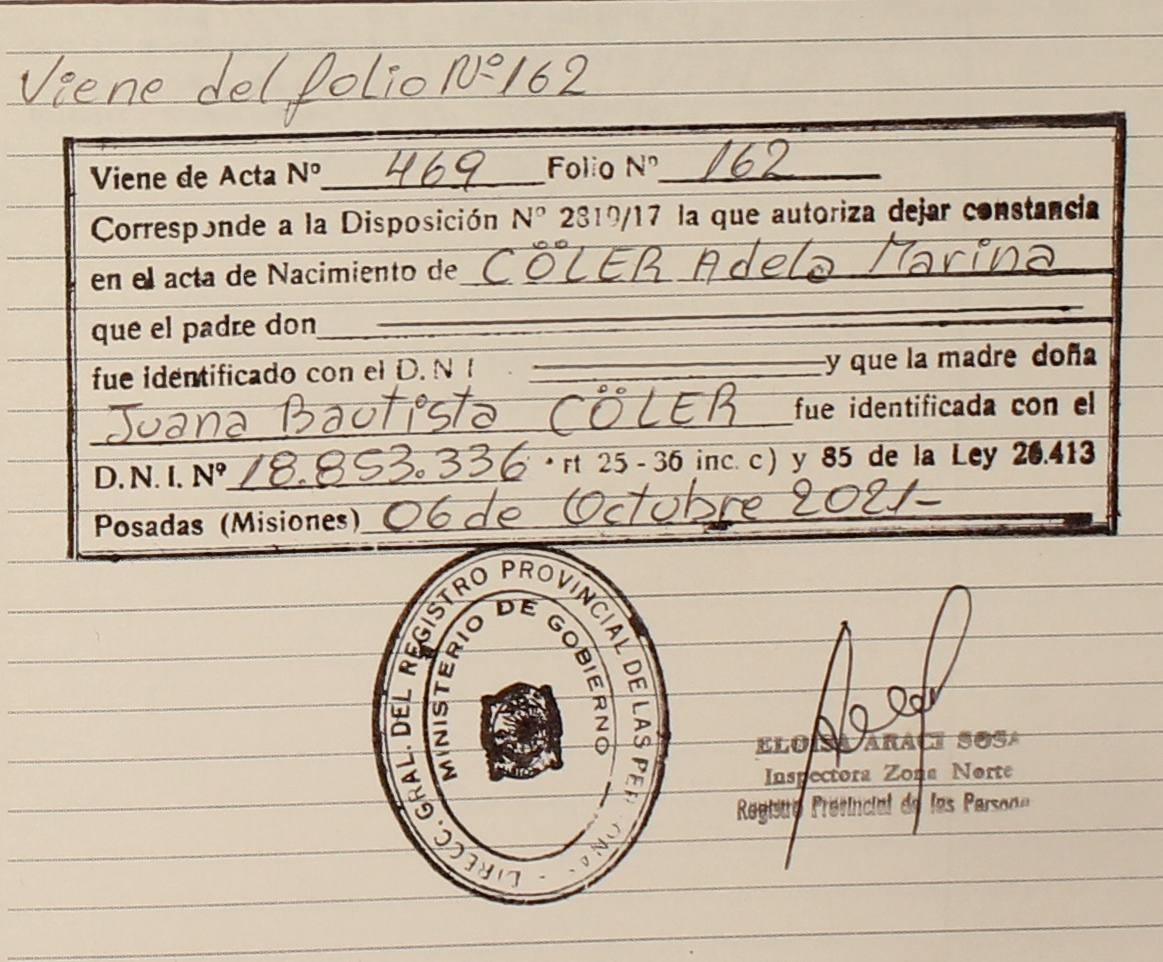 Viene del folio Nº 162
Viene de Acta Nº 469 Folio Nº 162
Corresponde a la Disposición Nº 2819/17 la que autoriza dejar constancia
en el acta de Nacimiento de CÖLER Adela Marina
que el padre don
fue identificado con el D. N I y que la madre doña
Juana Bautista CÖLER fue identificada con el
D. N. I. Nº 18.853.336 rt 25 - 36 inc. c) y 85 de la Ley 26.413
Posadas (Misiones) 06 de Octubre 2021-
DIRECC. GRAL. DEL REGISTRO PROVINCIAL DE LAS PERSONAS
MINISTERIO DE GOBIERNO
ELOISA ARACI SOSA
Inspectora Zona Norte
Registro Provincial de las Persona